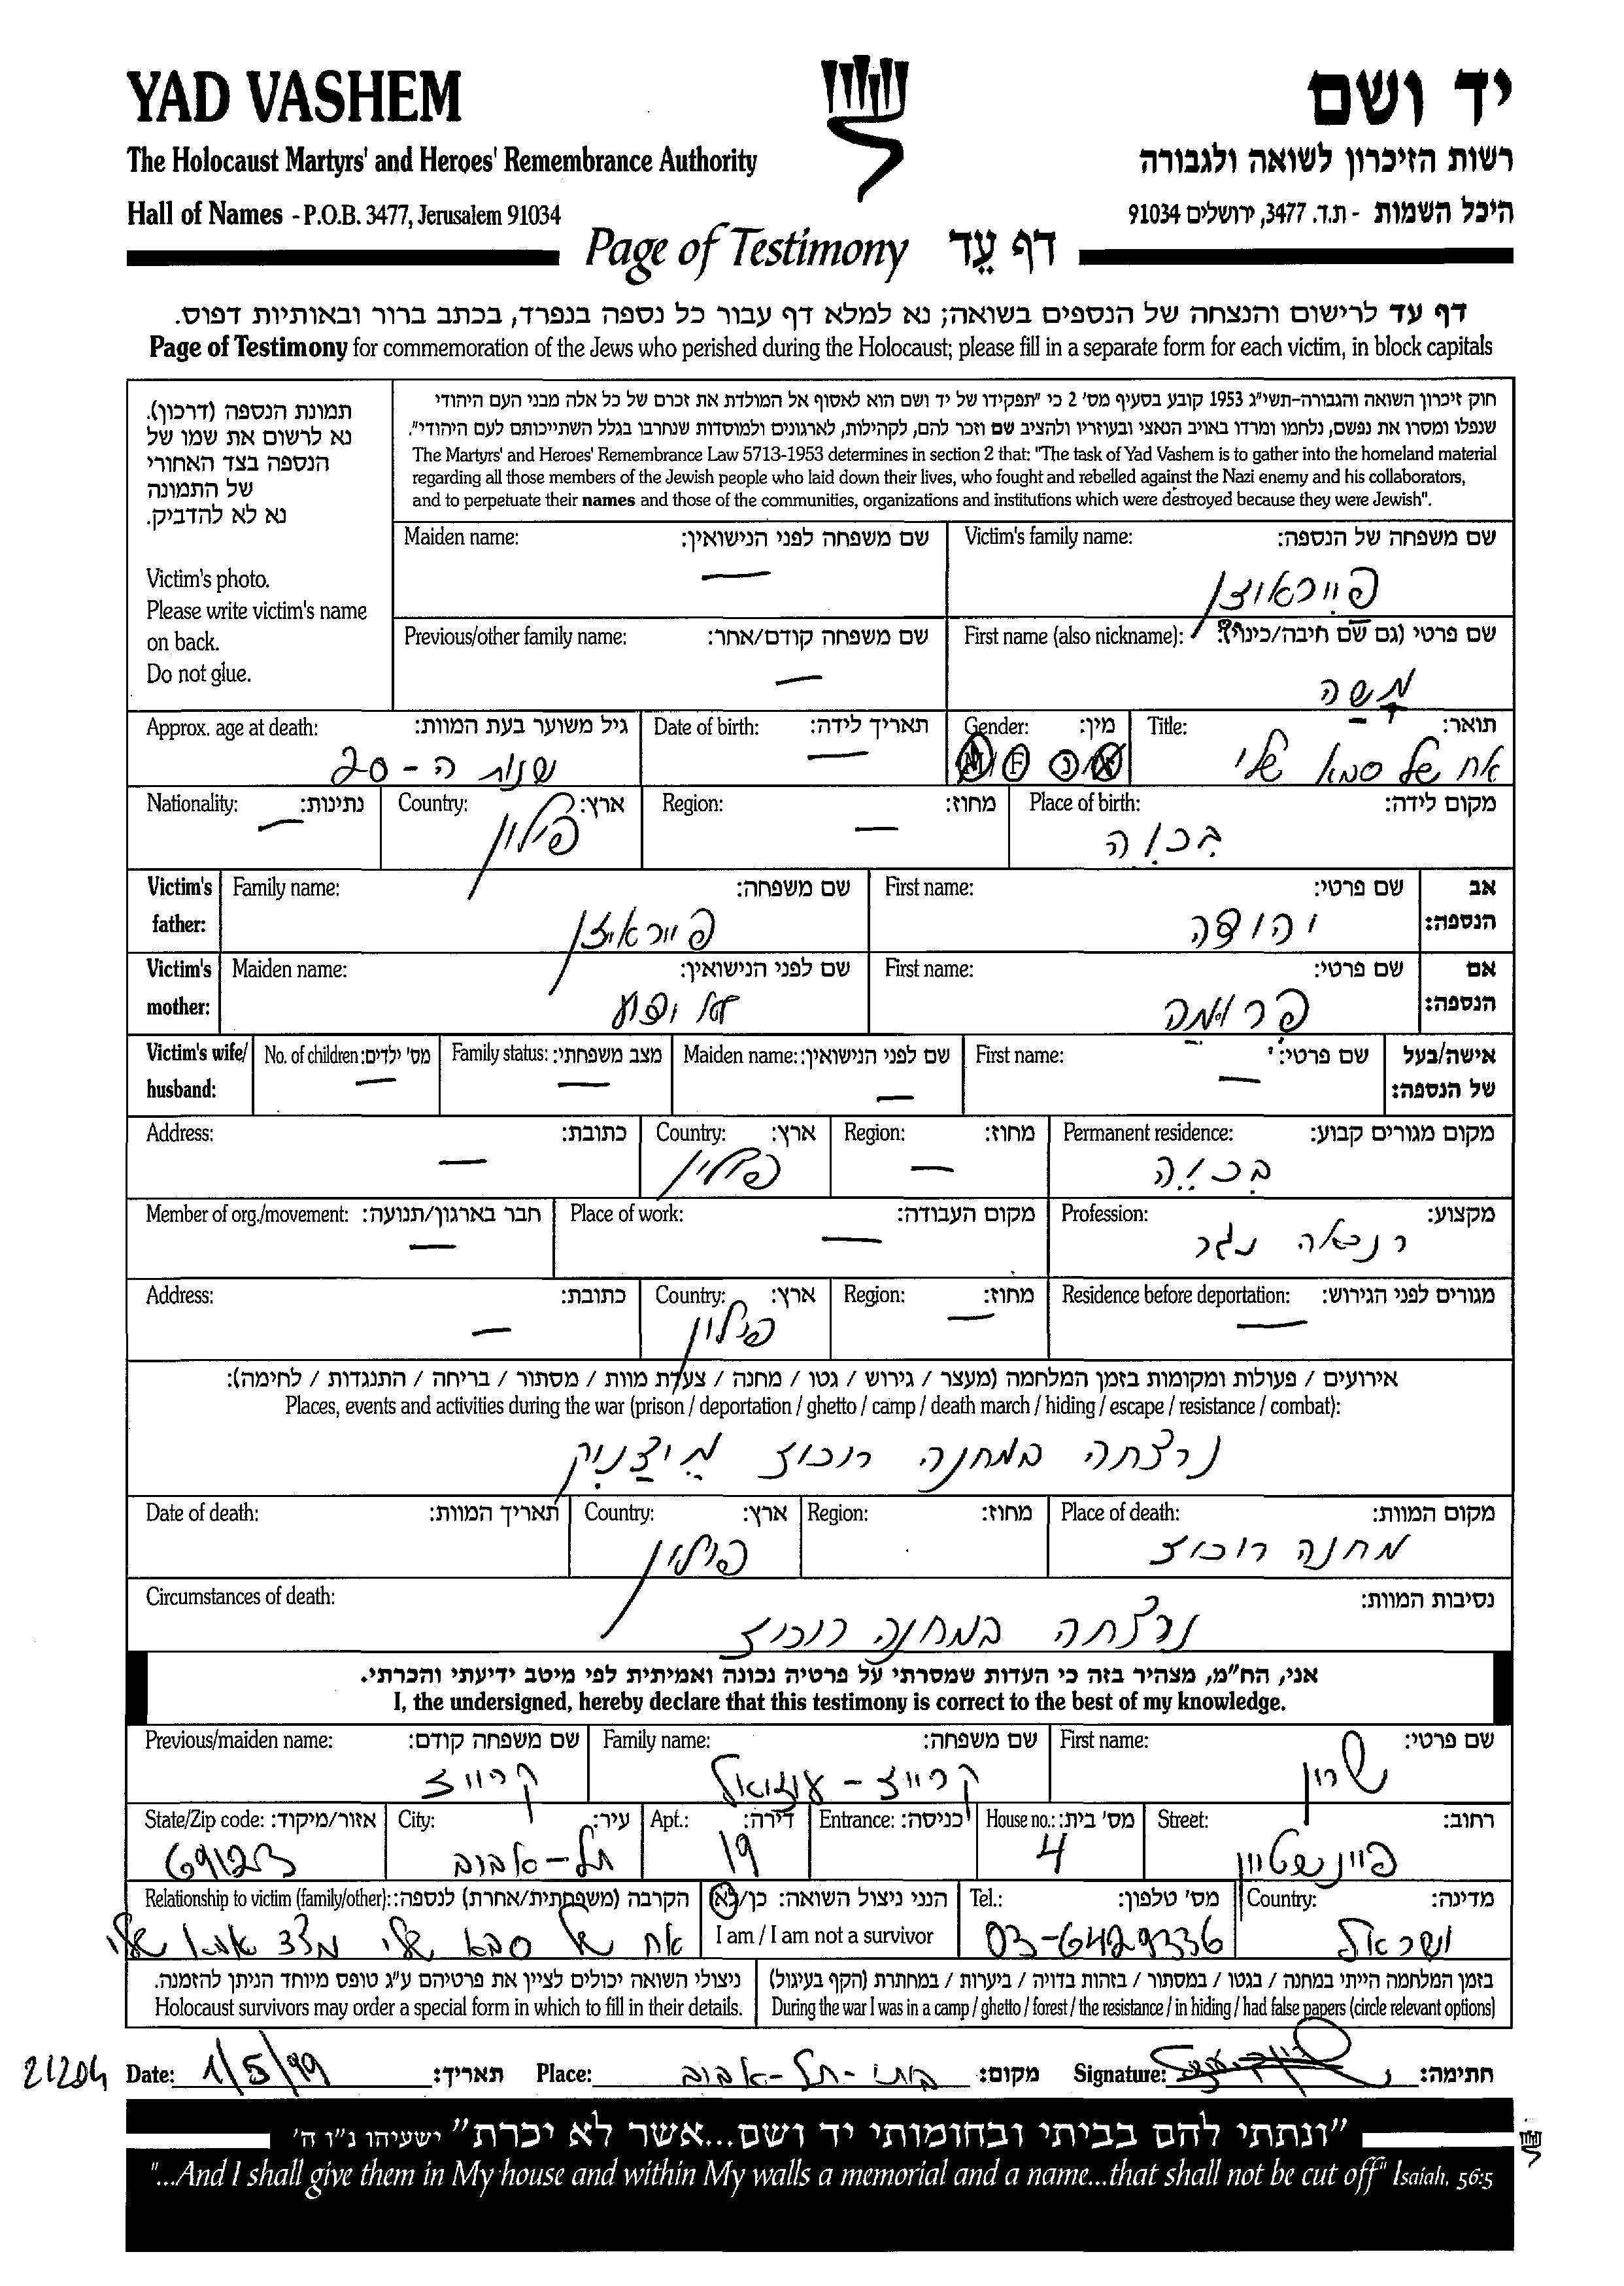 YAD VASHEM
יד ושם
The Holocaust Martyrs' and Heroes' Remembrance Authority
רשות הזיכרון לשואה ולגבורה
Hall of Names - P.O.B. 3477, Jerusalem 91034
היכל השמות - ת.ד. 3477, ירושלים 91034
Page of Testimony דף עֵד
דף עד לרישום והנצחה של הנספים בשואה; נא למלא דף עבור כל נספה בנפרד, בכתב ברור ובאותיות דפוס.
Page of Testimony for commemoration of the Jews who perished during the Holocaust; please fill in a separate form for each victim, in block capitals
תמונת הנספה (דרכון).
נא לרשום את שמו של
הנספה בצד האחורי
של התמונה
נא לא להדביק.
Victim's photo.
Please write victim's name
on back.
Do not glue.
חוק זיכרון השואה והגבורה-תשי"ג 1953 קובע בסעיף מס' 2 כי "תפקידו של יד ושם הוא לאסוף אל המולדת את זכרם של כל אלה מבני העם היהודי
שנפלו ומסרו את נפשם, נלחמו ומרדו באויב הנאצי ובעוזריו ולהציב שם וזכר להם, לקהילות, לארגונים ולמוסדות שנחרבו בגלל השתייכותם לעם היהודי".
The Martyrs' and Heroes' Remembrance Law 5713-1953 determines in section 2 that: "The task of Yad Vashem is to gather into the homeland material
regarding all those members of the Jewish people who laid down their lives, who fought and rebelled against the Nazi enemy and his collaborators,
and to perpetuate their names and those of the communities, organizations and institutions which were destroyed because they were Jewish".
Maiden name: שם משפחה לפני הנישואין: Victim's family name: שם משפחה של הנספה:
—
Previous/other family name: שם משפחה קודם/אחר: First name (also nickname): שם פרטי (גם שם חיבה/כינוי):
— משה
Approx. age at death: גיל משוער בעת המוות: Date of birth: תאריך לידה: Gender: מין: Title: תואר:
שנות ה-20 — M / F ז / נ אח של סבא שלי
Nationality: נתינות: Country: ארץ: Region: מחוז: Place of birth: מקום לידה:
— פולין — בכוה
Victim's father: Family name: שם משפחה: First name: שם פרטי: אב הנספה:
יהודה
Victim's mother: Maiden name: שם לפני הנישואין: First name: שם פרטי: אם הנספה:
לא ידוע פרומה
Victim's wife/ husband: No. of children: מס' ילדים: Family status: מצב משפחתי: Maiden name: שם לפני הנישואין: First name: שם פרטי: אישה/בעל של הנספה:
— — — —
Address: כתובת: Country: ארץ: Region: מחוז: Permanent residence: מקום מגורים קבוע:
— פולין — בכוה
Member of org./movement: חבר בארגון/תנועה: Place of work: מקום העבודה: Profession: מקצוע:
— — נגר
Address: כתובת: Country: ארץ: Region: מחוז: Residence before deportation: מגורים לפני הגירוש:
— פולין — —
אירועים / פעולות ומקומות בזמן המלחמה (מעצר / גירוש / גטו / מחנה / צעדת מוות / מסתור / בריחה / התנגדות / לחימה):
Places, events and activities during the war (prison / deportation / ghetto / camp / death march / hiding / escape / resistance / combat):
נרצחה במחנה ריכוז
Date of death: תאריך המוות: Country: ארץ: Region: מחוז: Place of death: מקום המוות:
פולין מחנה ריכוז
Circumstances of death: נסיבות המוות:
נרצחה במחנה ריכוז
אני, הח"מ, מצהיר בזה כי העדות שמסרתי על פרטיה נכונה ואמיתית לפי מיטב ידיעתי והכרתי.
I, the undersigned, hereby declare that this testimony is correct to the best of my knowledge.
Previous/maiden name: שם משפחה קודם: Family name: שם משפחה: First name: שם פרטי:
קרייז קרייז-עמנואל שרון
State/Zip code: אזור/מיקוד: City: עיר: Apt.: דירה: Entrance: כניסה: House no.: מס' בית: Street: רחוב:
69123 תל-אביב 19 4 פיינשטיין
Relationship to victim (family/other): הקרבה (משפחתית/אחרת) לנספה: הנני ניצול השואה: כן/לא Tel.: מס' טלפון: Country: מדינה:
אח של סבא שלי מצד אבא שלי I am / I am not a survivor 03-6429336 ישראל
ניצולי השואה יכולים לציין את פרטיהם ע"ג טופס מיוחד הניתן להזמנה.
Holocaust survivors may order a special form in which to fill in their details.
בזמן המלחמה הייתי במחנה / בגטו / במסתור / בזהות בדויה / ביערות / במחתרת (הקף בעיגול)
During the war I was in a camp / ghetto / forest / the resistance / in hiding / had false papers (circle relevant options)
21204 Date: 1/5/99 תאריך: Place: ביתי-תל-אביב מקום: Signature: חתימה:
"ונתתי להם בביתי ובחומותי יד ושם...אשר לא יכרת" ישעיהו נ"ו ה'
"...And I shall give them in My house and within My walls a memorial and a name...that shall not be cut off" Isaiah, 56:5